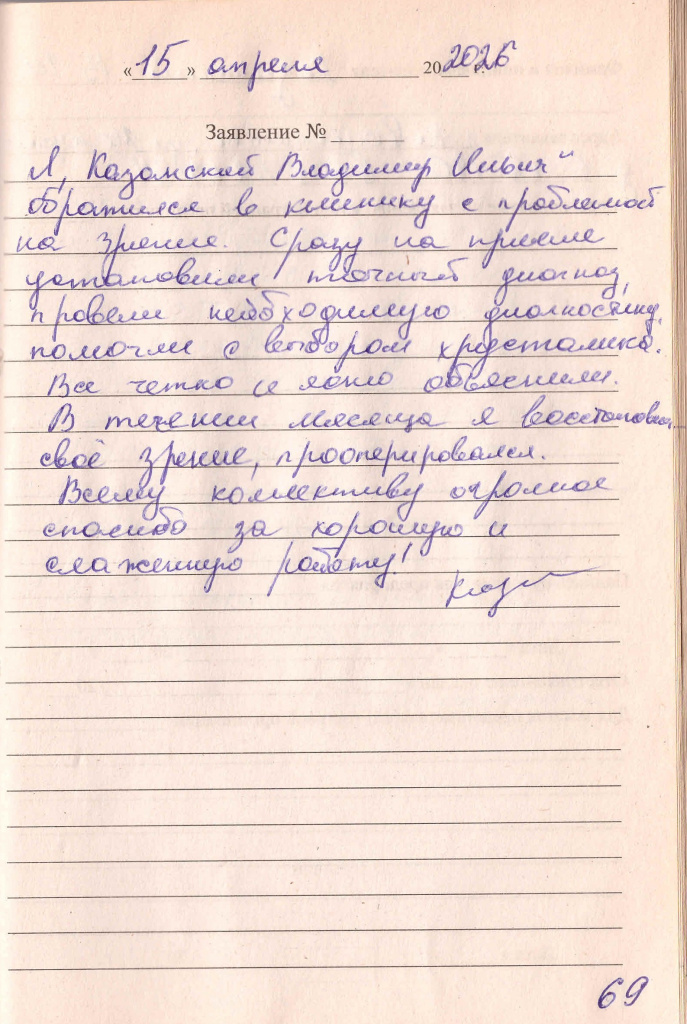 «15» апреля 202026 г.
Заявление №
Я, Казанский Владимир Ильич
обратился в клинику с проблемой
на зрение. Сразу на приеме
установили точный диагноз,
провели необходимую диагностику,
помогли с выбором хрусталика.
Все четко и ясно объяснили.
В течении месяца я восстановил
своё зрение, прооперировался.
Всему коллективу огромное
спасибо за хорошую и
слаженную работу!
69